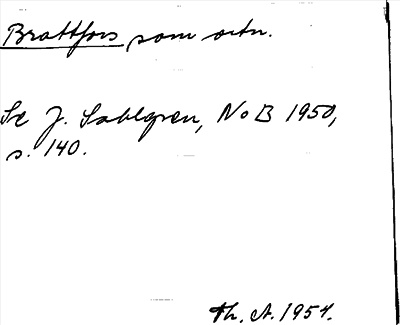 Brattfors som ortn.
Se J. Sahlgren, NoB 1950,
s. 140.
Th. A. 1954.